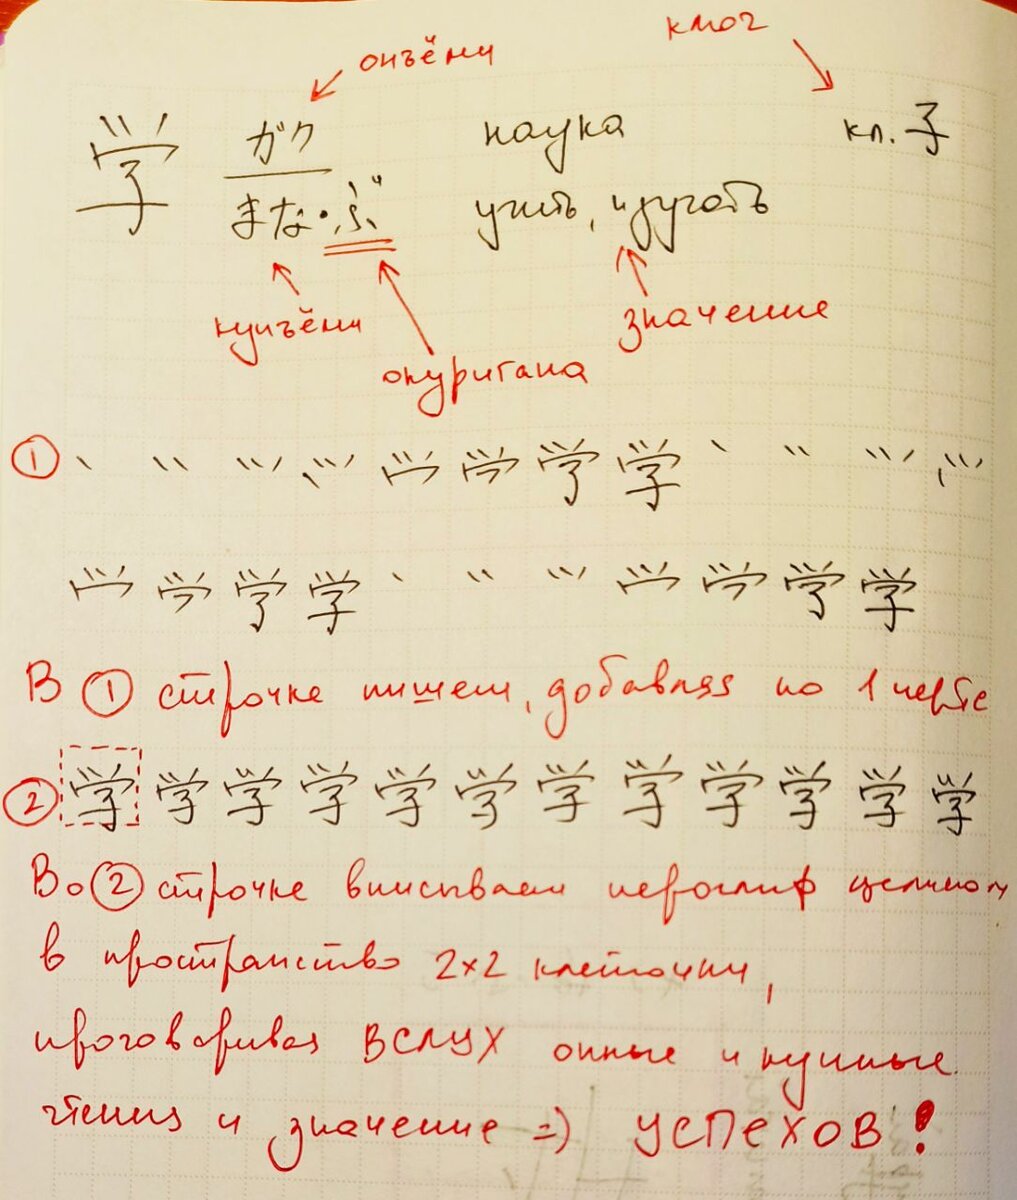 онъёми ключ
学 ガク наука кл. 子
まな・ぶ учить, изучать
кунъёми значение
окуригана
① 学 学
学 学 学 学
В ① строчке пишем, добавляя по 1 черте
② 学 学 学 学 学 学 学 学 学 学 学 学
Во ② строчке вписываем иероглиф целиком
в пространство 2×2 клеточки,
проговаривая ВСЛУХ онные и кунные
чтения и значение =) УСПЕХОВ!